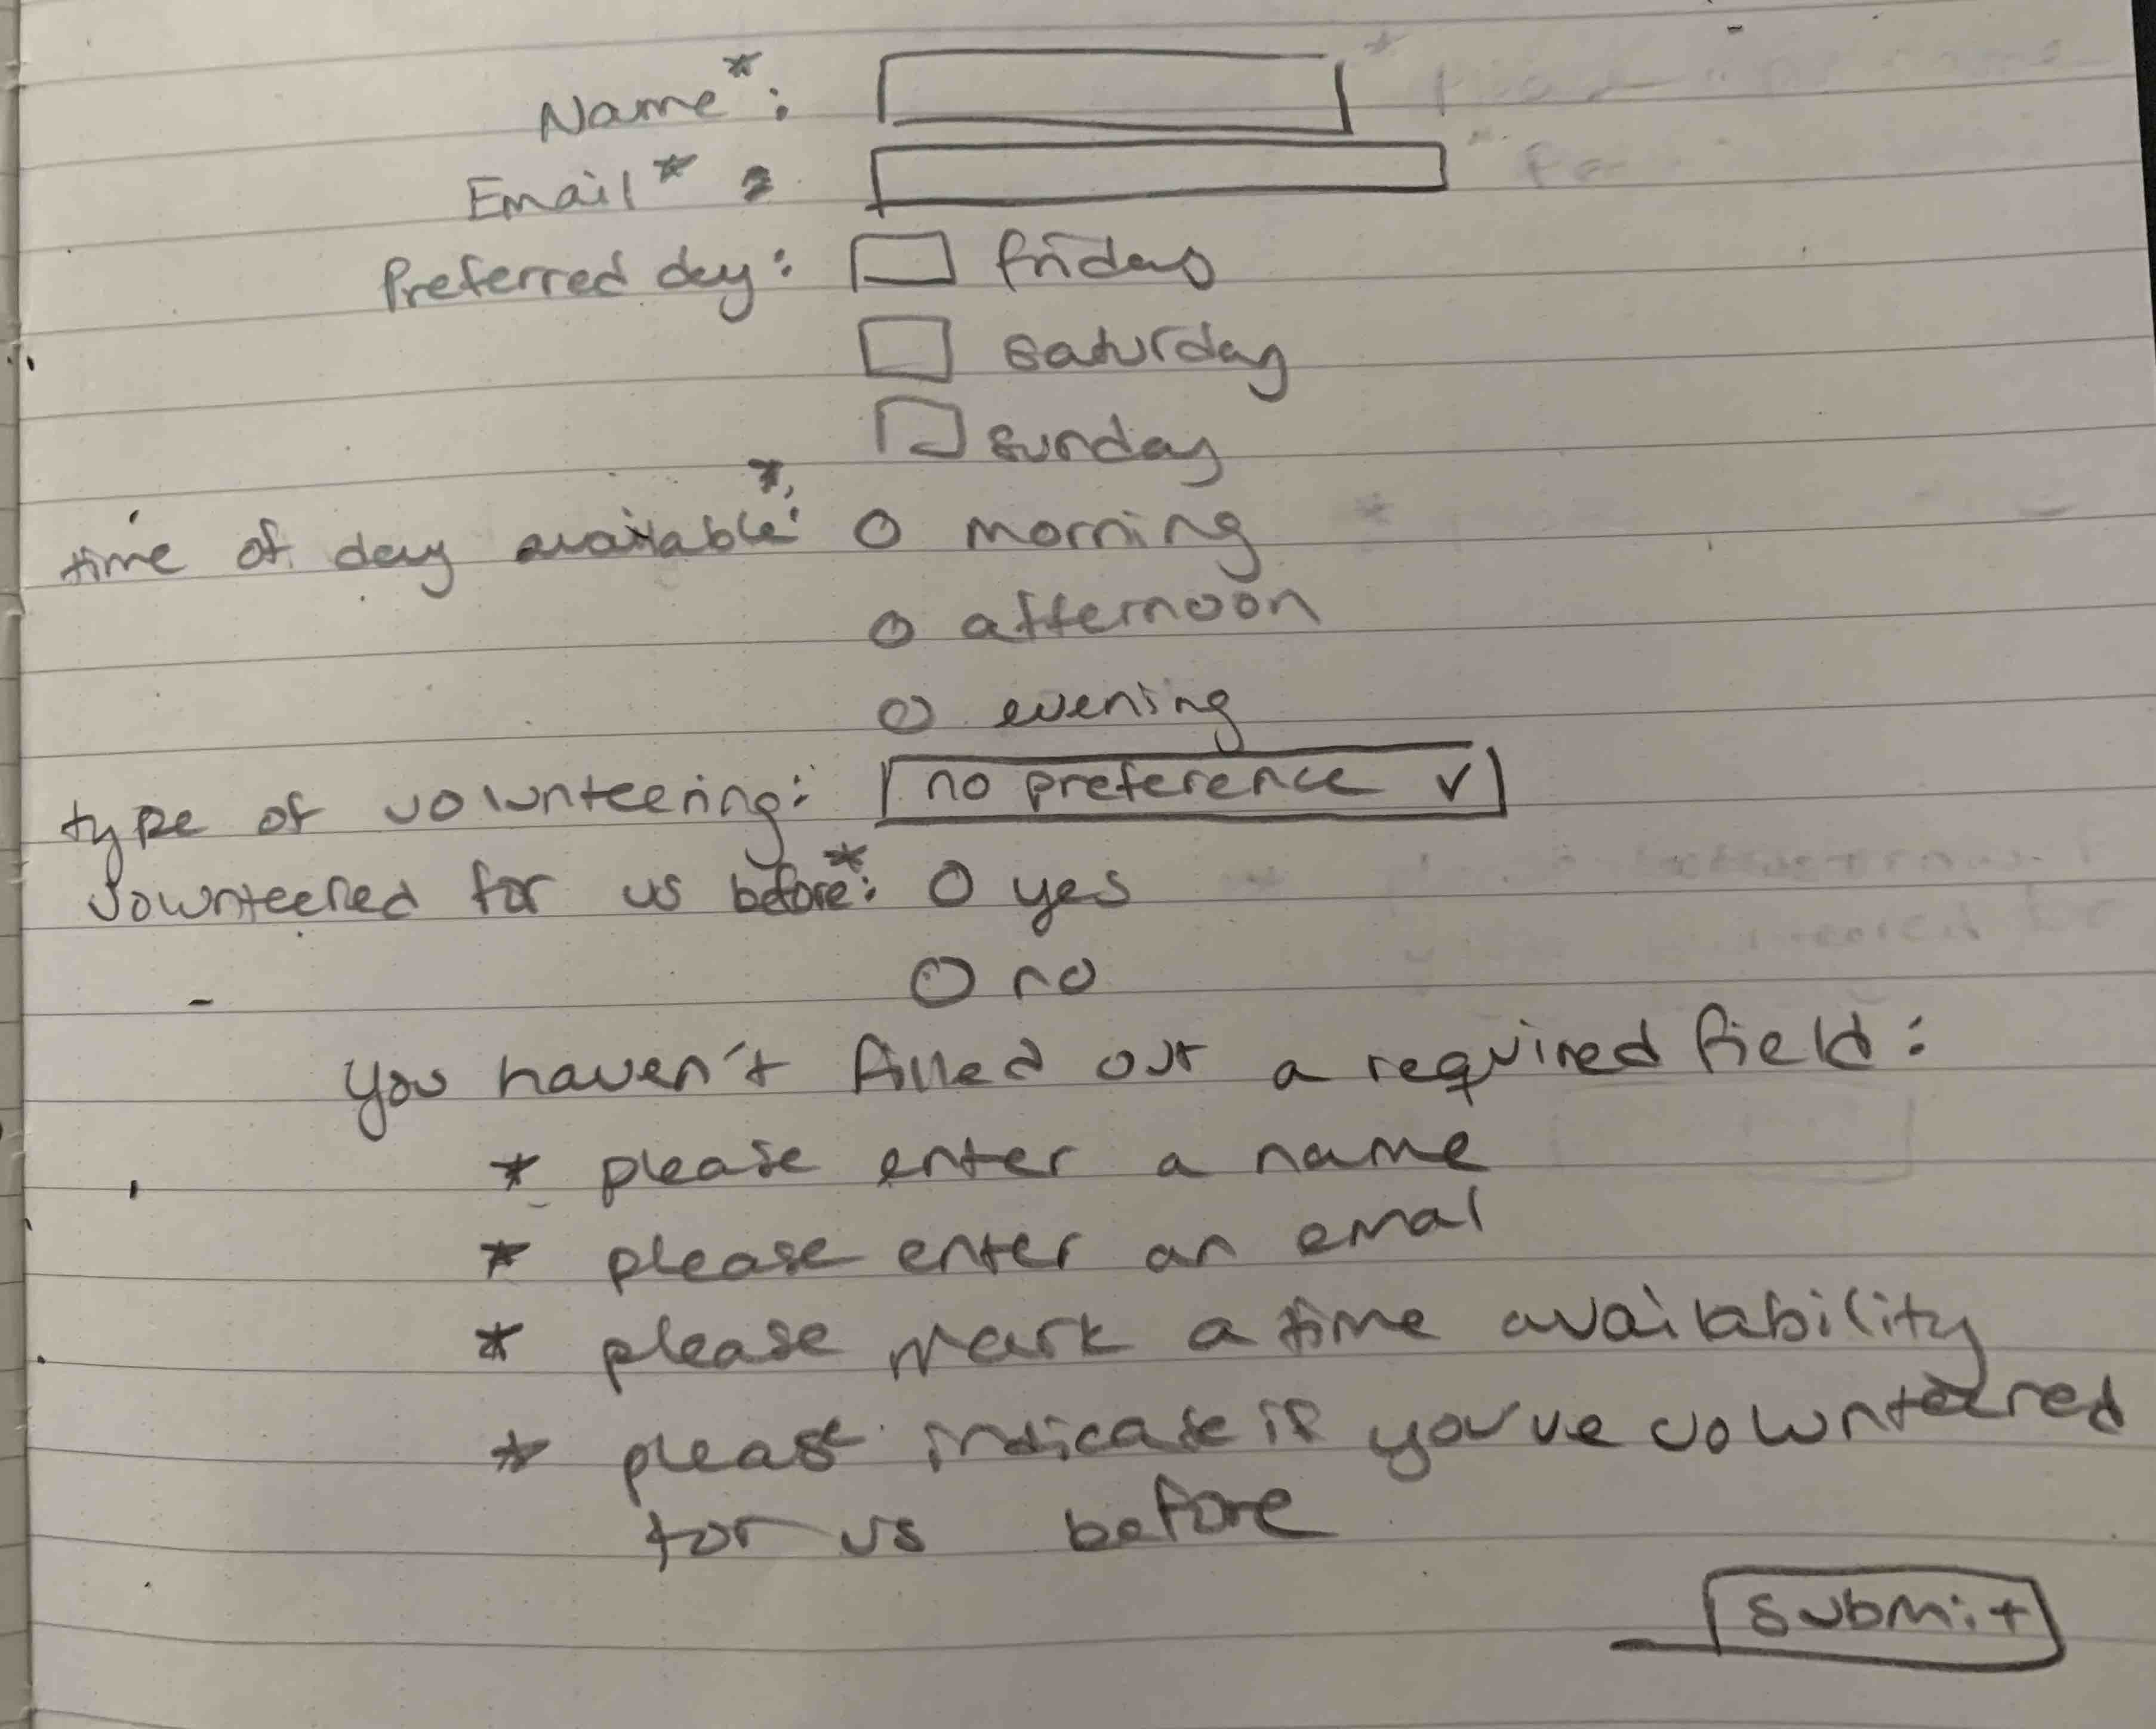 Name*:
Email*:
Preferred day: friday
saturday
sunday
time of day available*: morning
afternoon
evening
type of volunteering: no preference
volunteered for us before*: yes
no
you haven't filled out a required field:
* please enter a name
* please enter an emal
* please mark a time availability
* please indicate if you've volunteered
for us before
submit